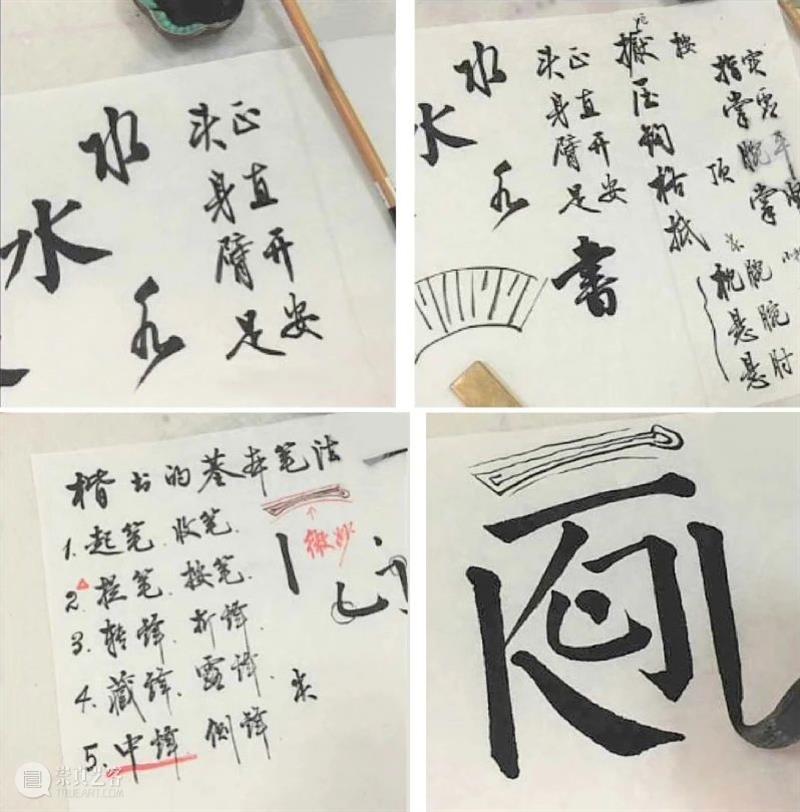 水
水
头正
身直
臂开
足安
水
水
头正
身直
臂开
足安
書
按
擫压钩格抵
顶
指实
掌虚
腕平
掌
枕腕
悬腕
悬肘
楷书的基本笔法
1.起笔.收笔.
2.提笔.按笔.
3.转锋.折锋.
4.藏锋.露锋.
5.中锋.侧锋
微妙
崇真艺客
TRUEART.COM